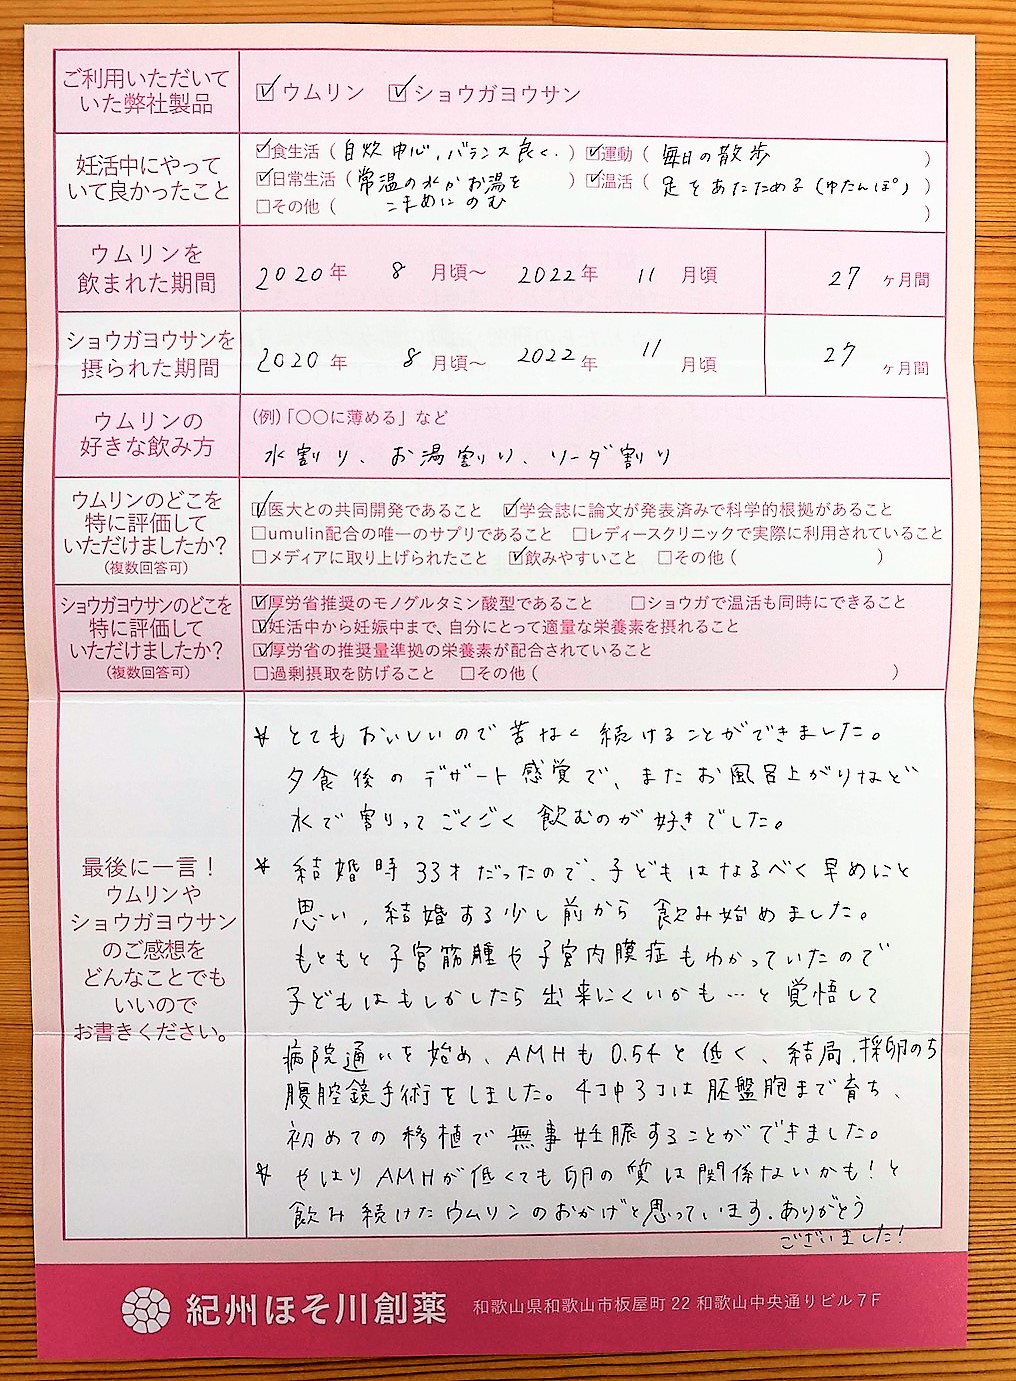 ご利用いただいて
いた弊社製品
☑ウムリン ☑ショウガヨウサン
妊活中にやって
いて良かったこと
☑食生活（自炊中心、バランス良く.） ☑運動（毎日の散歩）
☑日常生活（常温の水かお湯を
こまめにのむ） ☑温活（足をあたためる（ゆたんぽ））
□その他（ ）
ウムリンを
飲まれた期間
2020年 8 月頃～ 2022年 11 月頃 27 ヶ月間
ショウガヨウサンを
摂られた期間
2020年 8 月頃～ 2022年 11 月頃 27 ヶ月間
ウムリンの
好きな飲み方
（例）「〇〇に薄める」など
水割り、お湯割り、ソーダ割り
ウムリンのどこを
特に評価して
いただけましたか？
（複数回答可）
☑医大との共同開発であること ☑学会誌に論文が発表済みで科学的根拠があること
□umulin配合の唯一のサプリであること □レディースクリニックで実際に利用されていること
□メディアに取り上げられたこと ☑飲みやすいこと □その他（ ）
ショウガヨウサンのどこを
特に評価して
いただけましたか？
（複数回答可）
☑厚労省推奨のモノグルタミン酸型であること □ショウガで温活も同時にできること
☑妊活中から妊娠中まで、自分にとって適量な栄養素を摂れること
☑厚労省の推奨量準拠の栄養素が配合されていること
□過剰摂取を防げること □その他（ ）
最後に一言！
ウムリンや
ショウガヨウサン
のご感想を
どんなことでも
いいので
お書きください。
＊とてもおいしいので苦なく続けることができました。
夕食後のデザート感覚で、またお風呂上がりなど
水で割ってごくごく飲むのが好きでした。
＊結婚時33才だったので、子どもはなるべく早めにと
思い、結婚する少し前から飲み始めました。
もともと子宮筋腫や子宮内膜症もわかっていたので
子どもはもしかしたら出来にくいかも…と覚悟して
病院通いを始め、AMHも0.54と低く、結局、採卵のち
腹腔鏡手術をしました。4コ中3コは胚盤胞まで育ち、
初めての移植で無事妊娠することができました。
＊やはりAMHが低くても卵の質は関係ないかも！と
飲み続けたウムリンのおかげと思っています。ありがとう
ございました！
紀州ほそ川創薬 和歌山県和歌山市板屋町22 和歌山中央通りビル7F